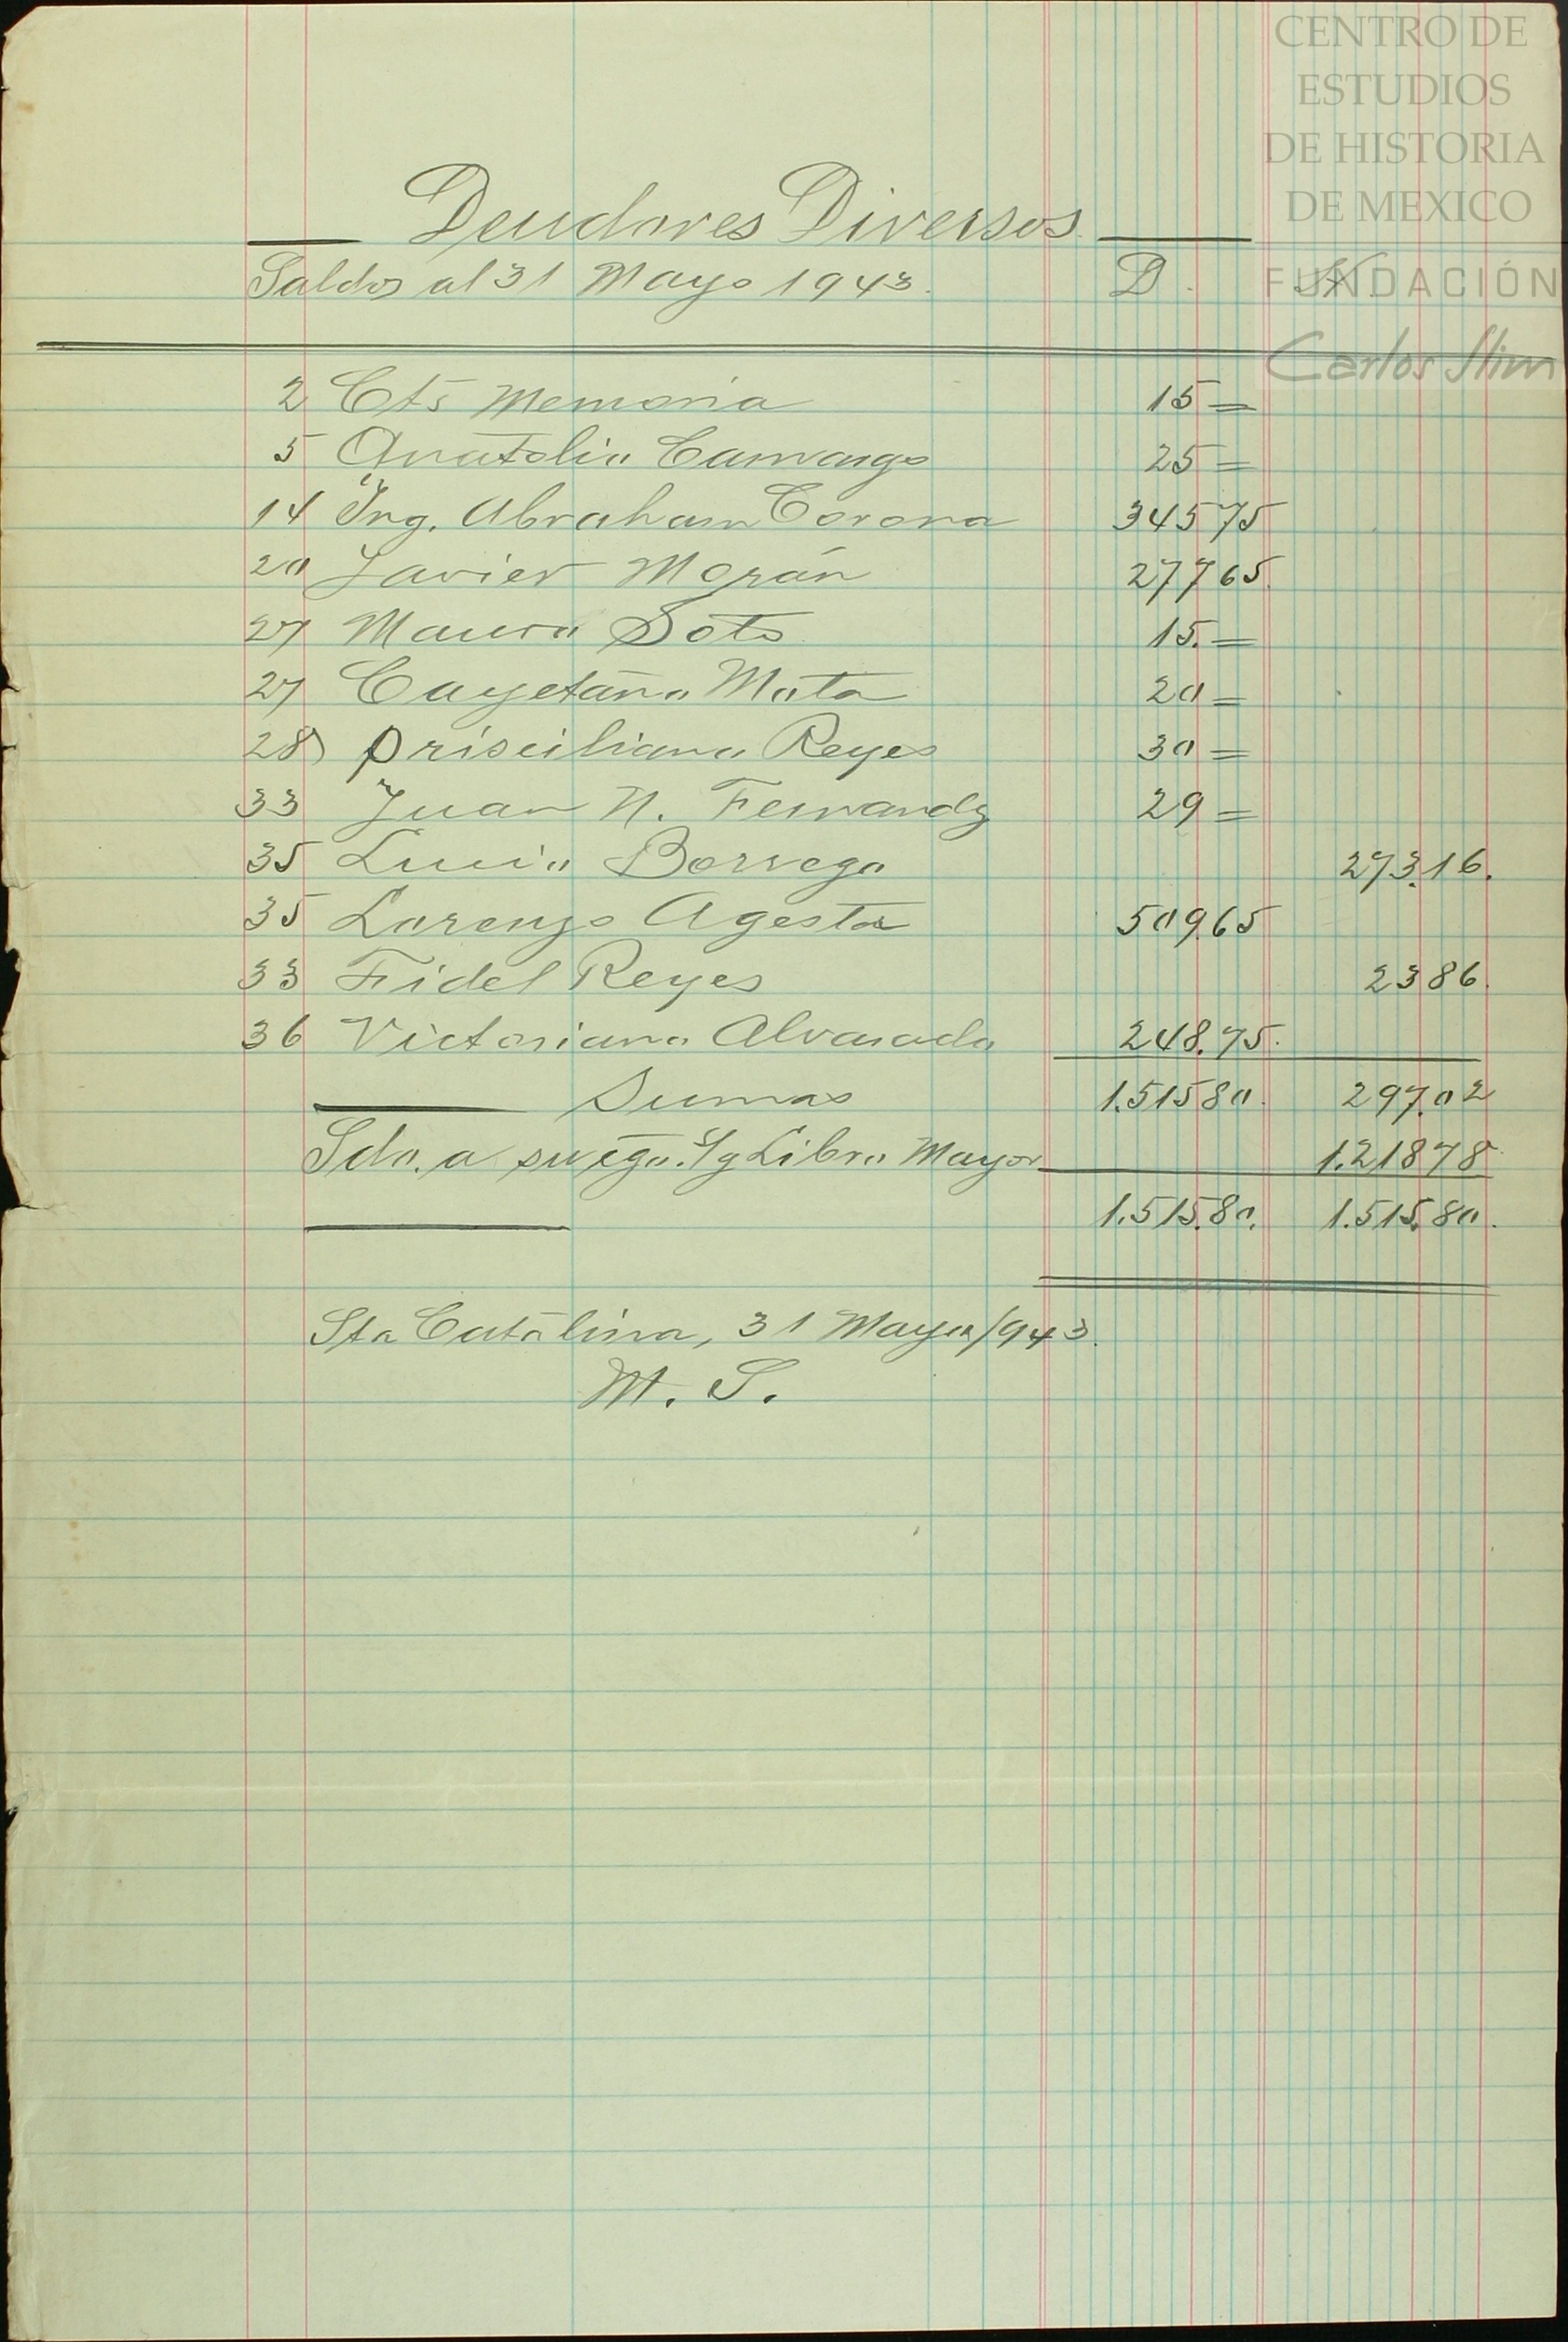 CENTRO DE
ESTUDIOS
DE HISTORIA
DE MEXICO
FUNDACIÓN
Carlos Slim
Deudores Diversos
Saldos al 31 Mayo 1943. D. H.
2 Cts Memoria 15 =
5 Anatolio Camargo 25 =
14 Ing. Abraham Corona 345 75
20 Javier Morán 277 65.
27 Mauro Soto 15. =
27 Cayetano Mata 20 =
28 Prisciliano Reyes 30 =
33 Juan N. Fernandz 29 =
35 Lucio Borrego 273.16.
35 Lorenzo Agesta 509.65
33 Fidel Reyes 23 86.
36 Victoriano Alvarado 248.75.
Sumas 1.515 80. 297.02
Sdo. a su cgo. s/g Libro Mayor 1.218 78
1.515.80. 1.515.80.
Sta Catalina, 31 Mayo/943.
M. S.